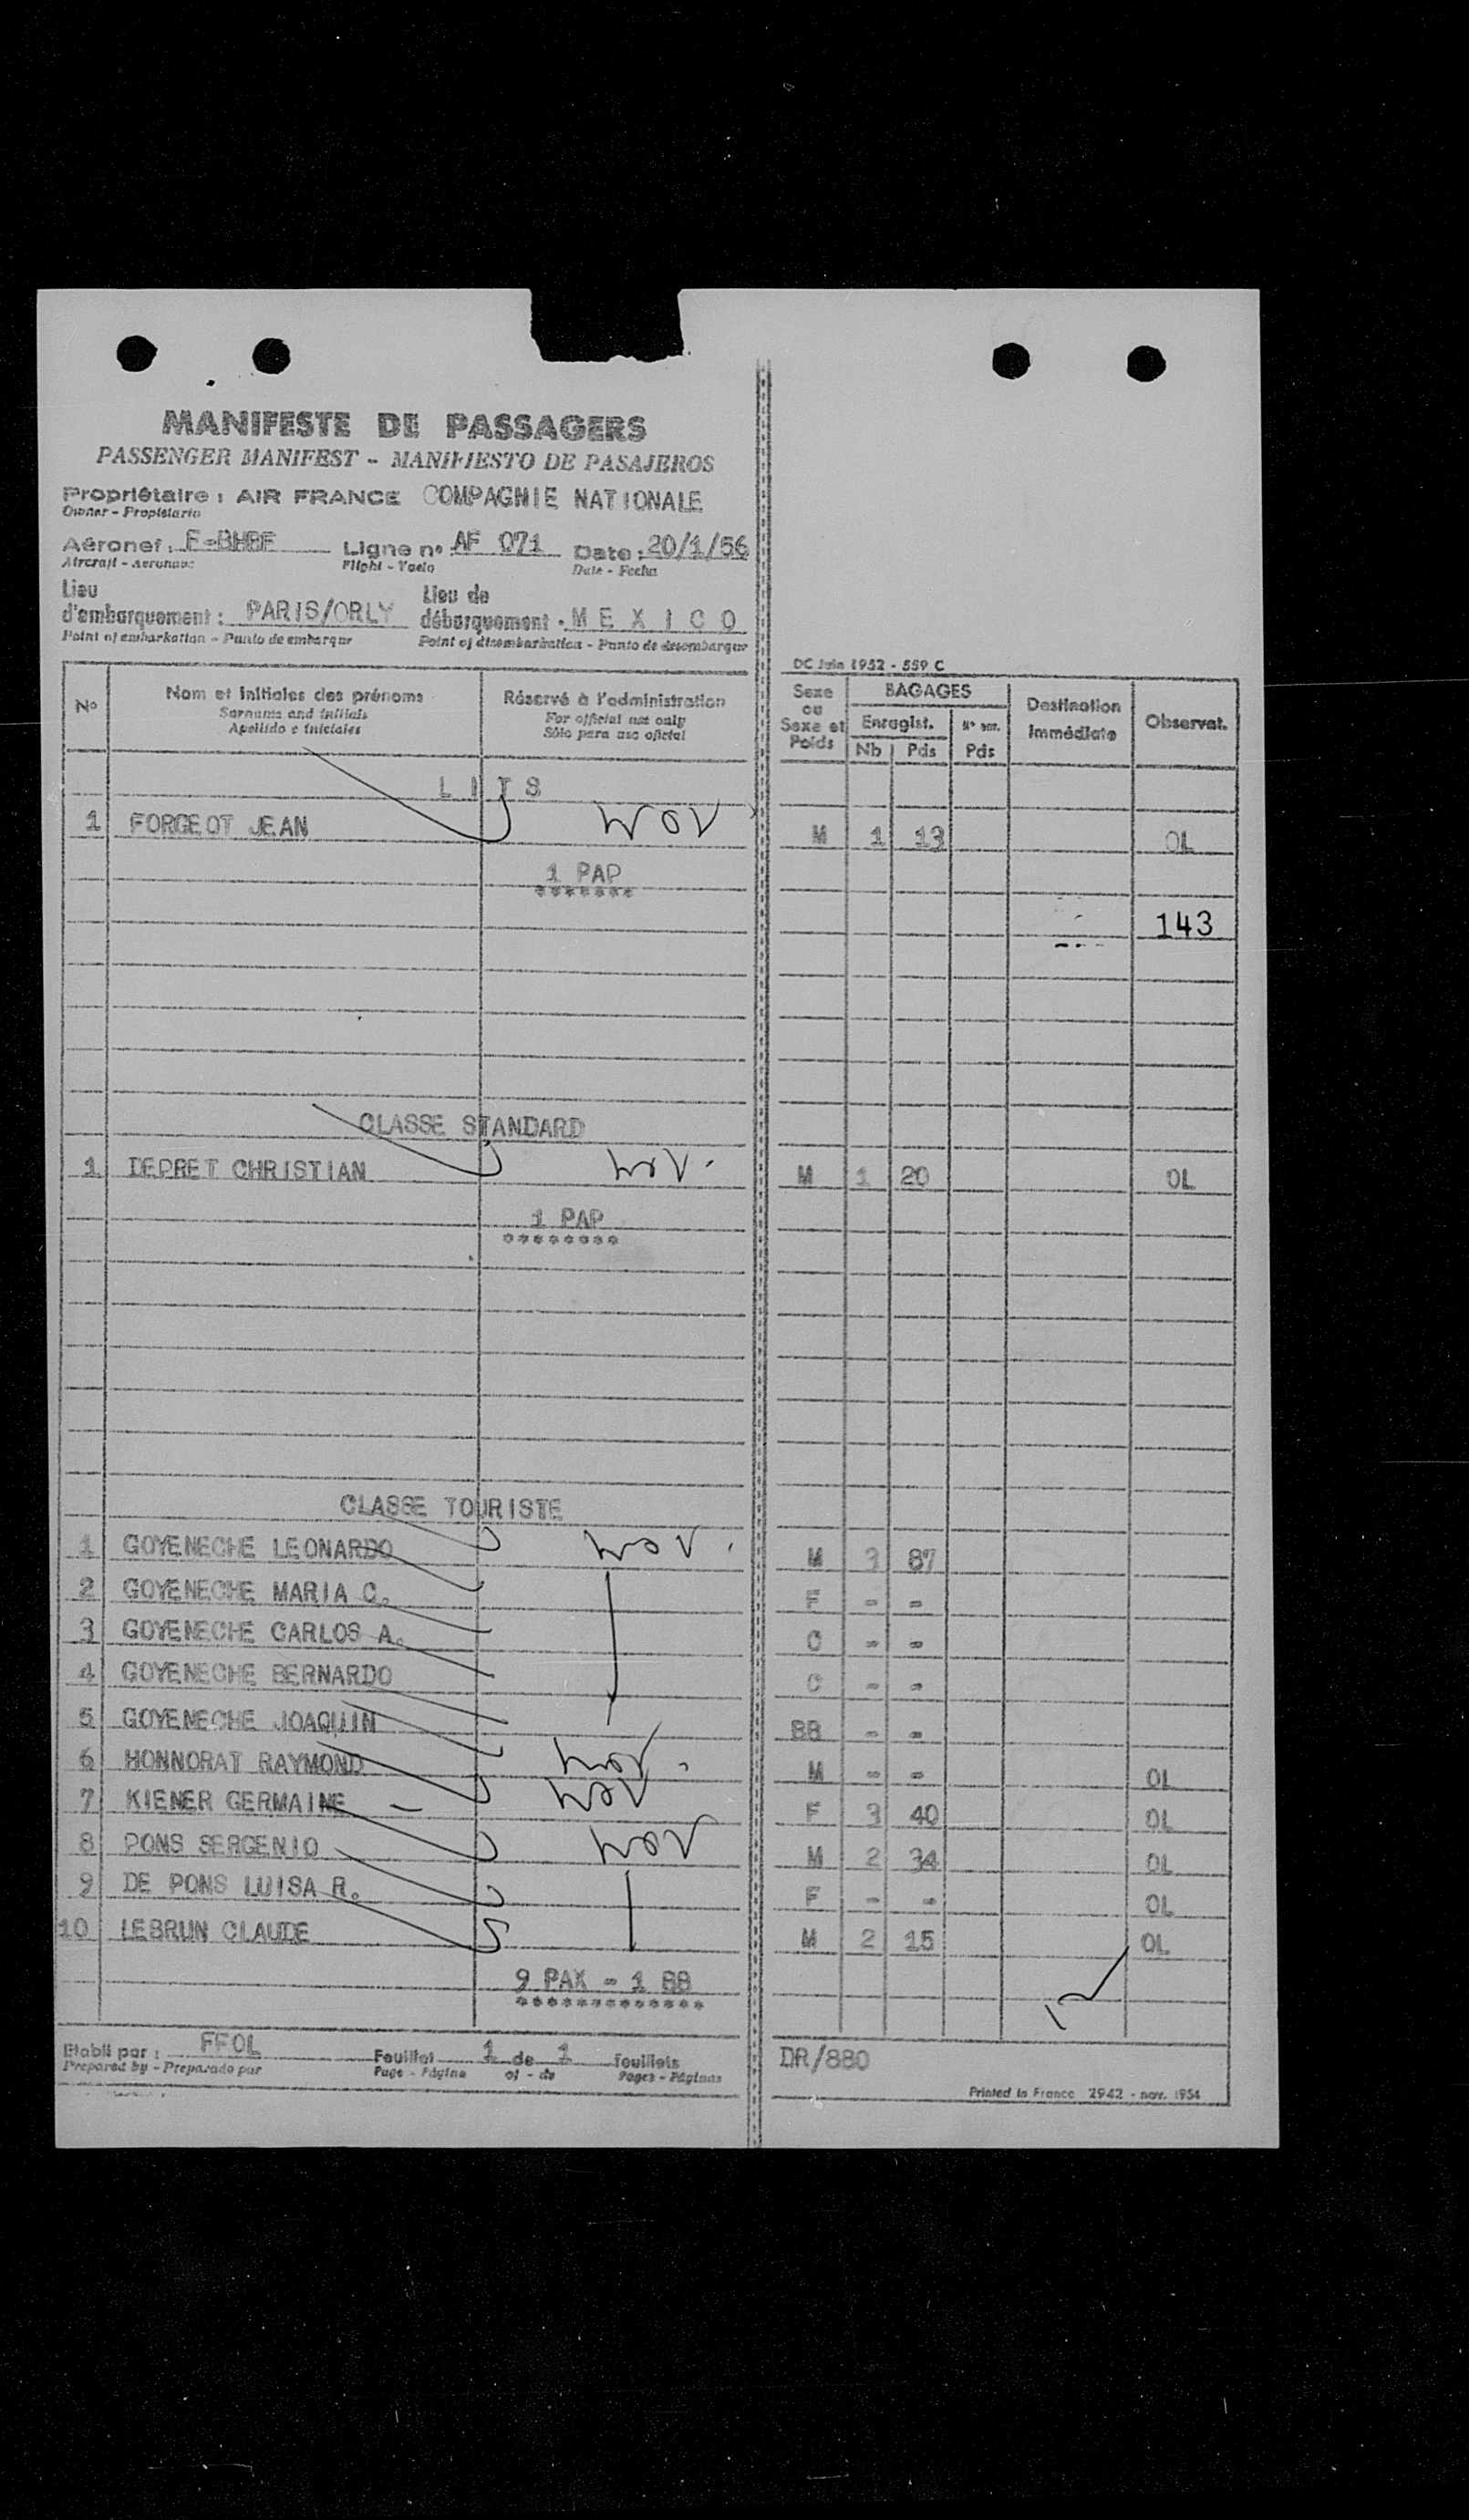 MANIFESTE DE PASSAGERS
PASSENGER MANIFEST - MANIFIESTO DE PASAJEROS
Propriétaire : AIR FRANCE COMPAGNIE NATIONALE
Owner - Propietario
Aéronef : F-BHBF Ligne n° AF 071 Date : 20/1/56
Aircraft - Aeronave Flight - Vuelo Date - Fecha
Lieu d'embarquement : PARIS/ORLY Lieu de débarquement : MEXICO
Point of embarkation - Punto de embarque Point of disembarkation - Punto de desembarque
DC Juin 1952 - 559 C
N° Nom et initiales des prénoms Réservé à l'administration Sexe ou Sexe et Poids BAGAGES Destination immédiate Observat.
Surname and initials For official use only Enregist. Pds
Apellido e iniciales Sólo para uso oficial Nb Pds
LITS
1 FORGEOT JEAN M 1 13 OL
1 PAP
*******
143
CLASSE STANDARD
1 DEPRET CHRISTIAN M 1 20 OL
1 PAP
********
CLASSE TOURISTE
1 GOYENECHE LEONARDO M 3 87
2 GOYENECHE MARIA C. F - -
3 GOYENECHE CARLOS A. C - -
4 GOYENECHE BERNARDO C - -
5 GOYENECHE JOAQUIN BB - -
6 HONNORAT RAYMOND M - - OL
7 KIENER GERMAINE F 3 40 OL
8 PONS SERGENIO M 2 34 OL
9 DE PONS LUISA R. F - - OL
10 LEBRUN CLAUDE M 2 15 OL
9 PAX - 1 BB
*************
Etabli par : FFOL Feuillet 1 de 1 feuillets DR/880
Prepared by - Preparado por Page - Página of - de Pages - Páginas
Printed in France 2942 - nov. 1954